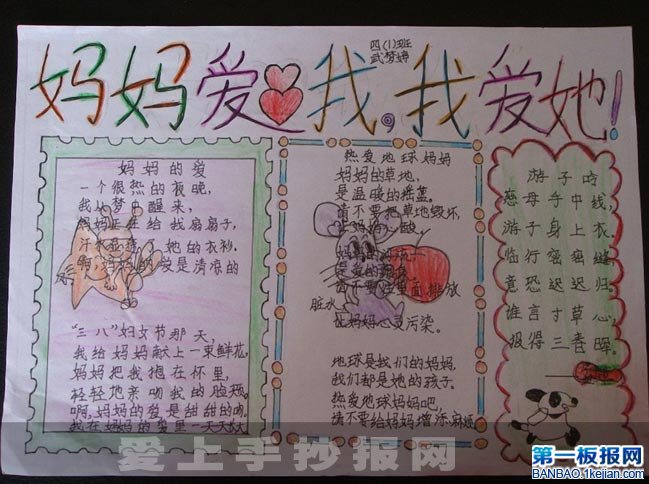 四(1)班
武梦婷
妈妈爱我,我爱她!
妈妈的爱
一个很热的夜晚,
我从梦中醒来,
妈妈正在给我扇扇子,
汗水湿透了她的衣衫.
啊,妈妈的爱是清凉的
风
"三八"妇女节那天,
我给妈妈献上一束鲜花,
妈妈把我抱在怀里,
轻轻地亲吻我的脸颊.
啊,妈妈的爱是甜甜的吻,
我在妈妈的爱里一天天
热爱地球妈妈
妈妈的草地,
是温暖的摇篮.
请不要把草地毁坏,
让妈妈心酸.
妈妈的
亲爱的
请不要往里面排放
脏水
让妈妈心灵污染.
地球是我们的妈妈,
我们都是她的孩子.
热爱地球妈妈吧,
请不要给妈妈增添麻烦.
游子吟
慈母手中线,
游子身上衣.
临行密密缝,
意恐迟迟归.
谁言寸草心,
报得三春晖.
爱上手抄报网
第一板报网
BANBAO.1kejian.com